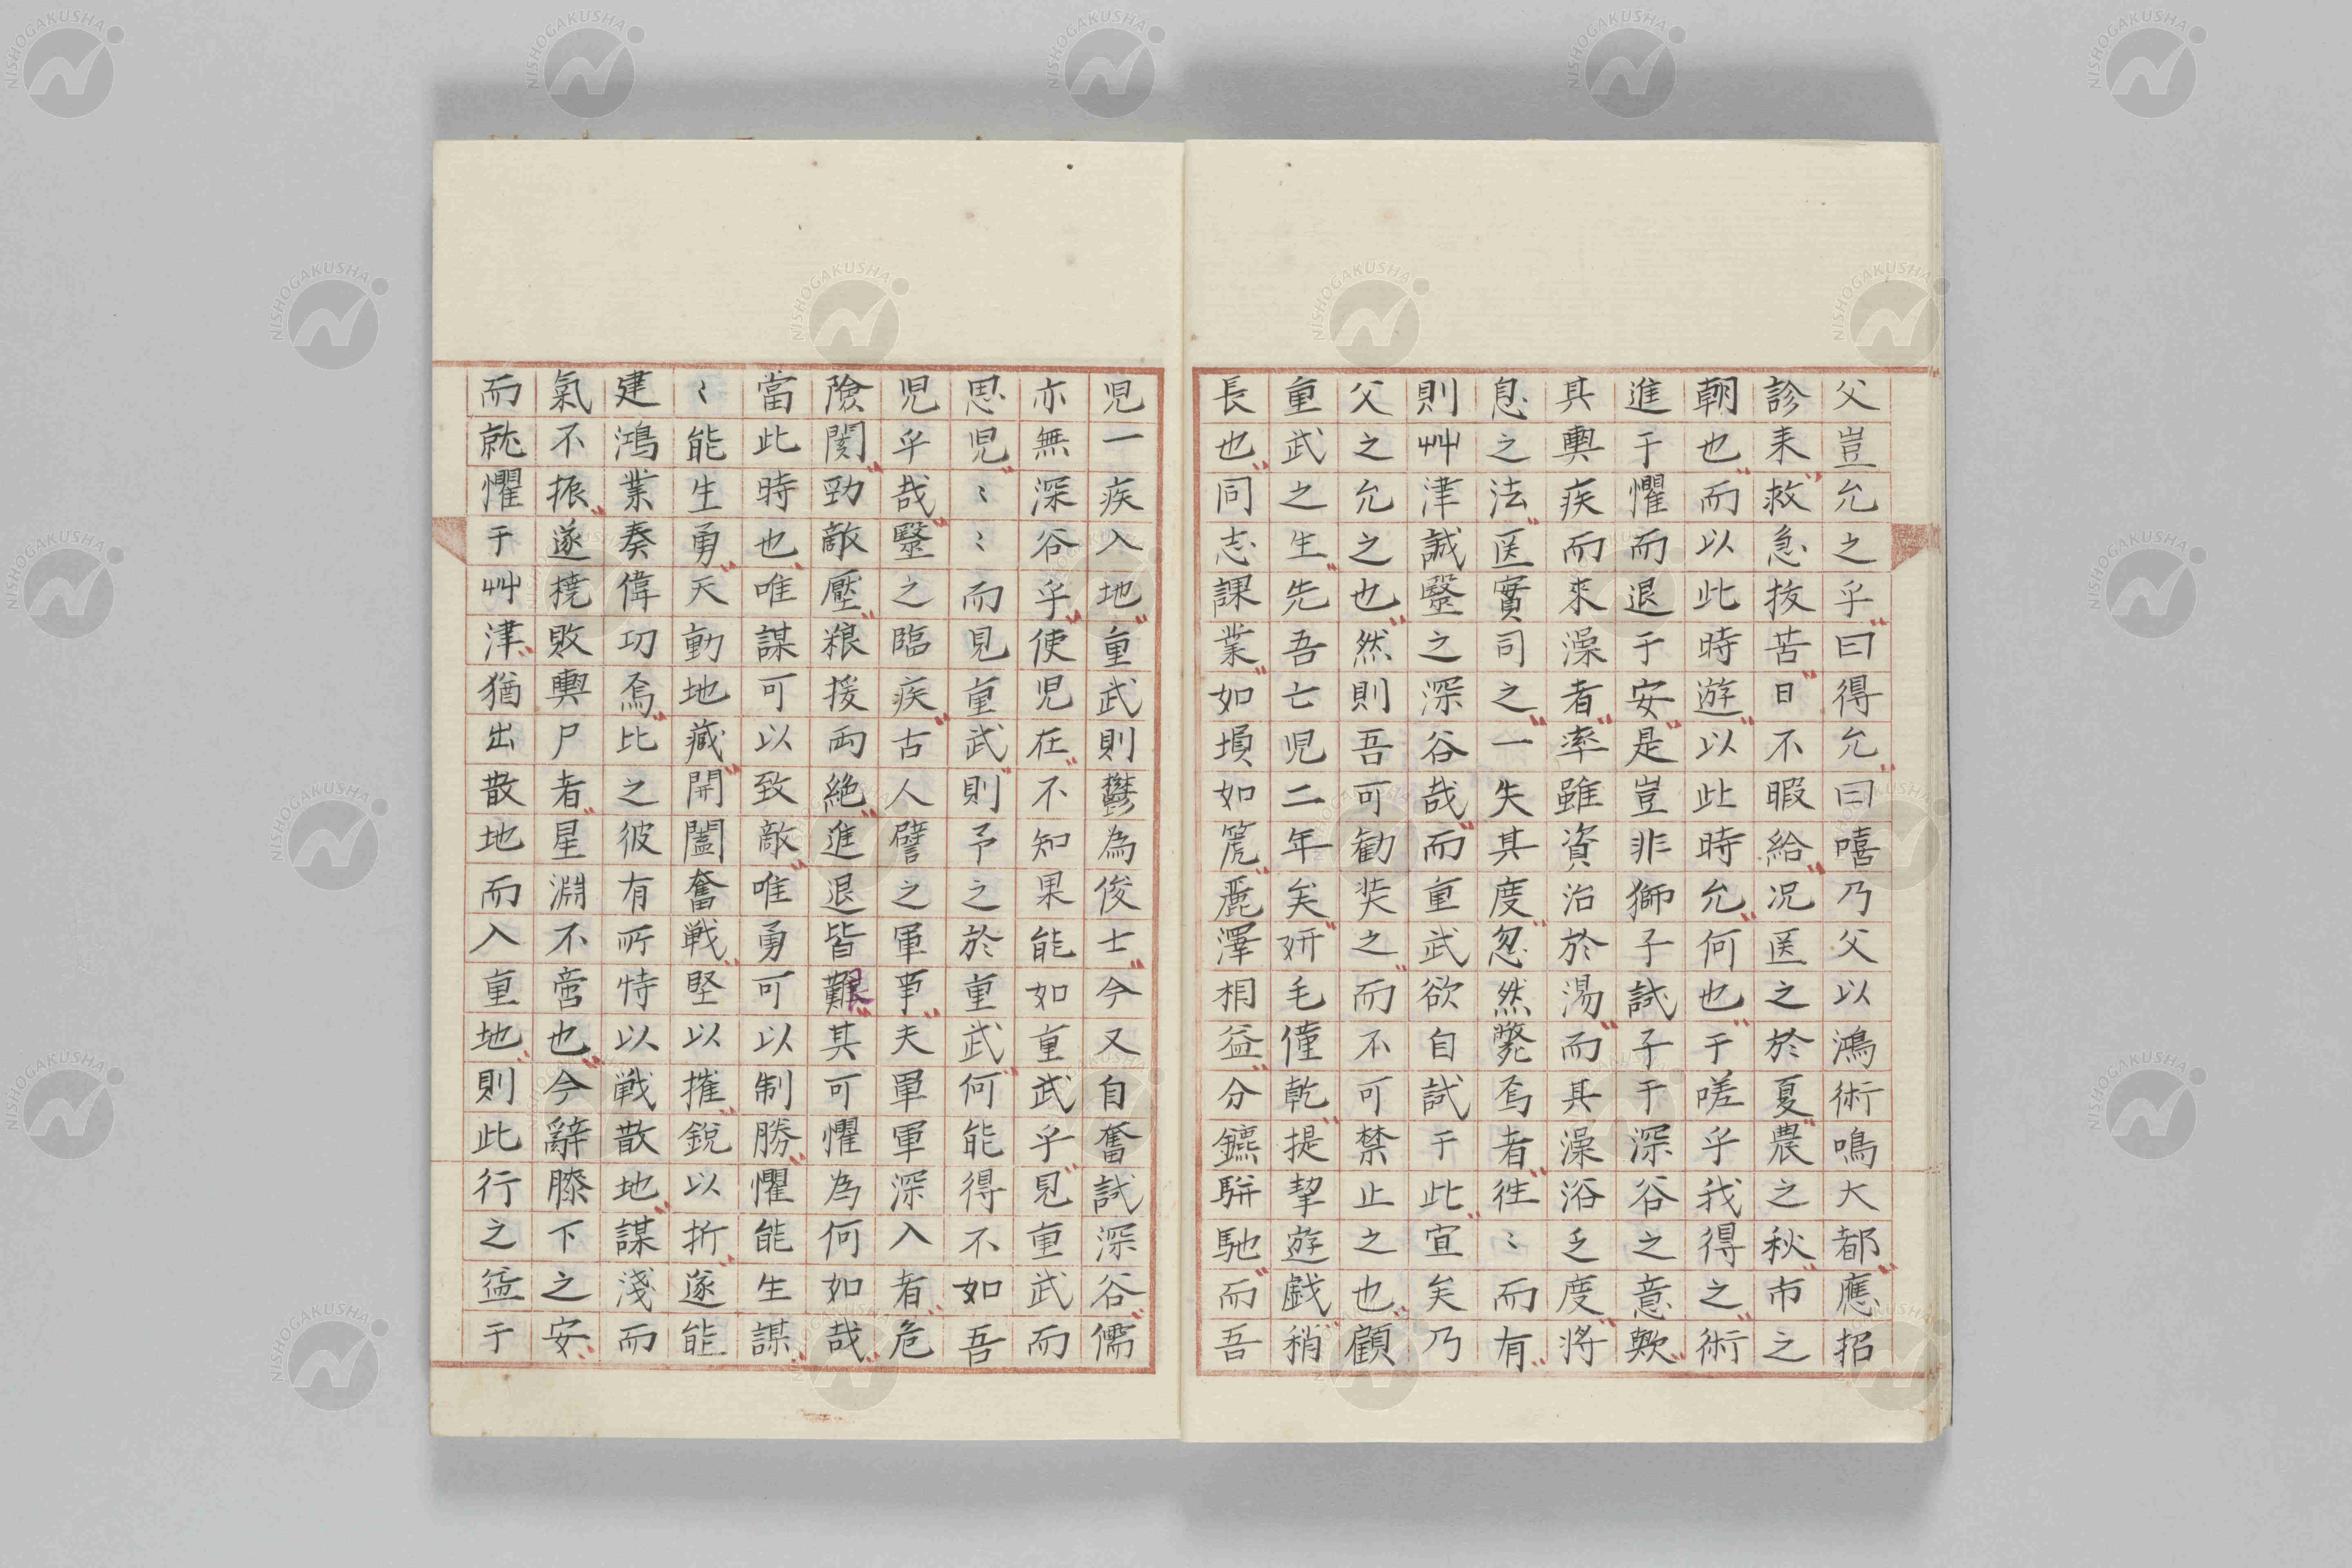 父豈允之乎曰得允曰嘻乃父以鴻術鳴大都應招
診来救急抜苦日不暇給况医之於夏農之秋市之
朝也而以此時遊以此時允何也于嗟乎我得之術
進于懼而退于安是豈非獅子試子于深谷之意歟
其輿疾而來澡者率雖資治於湯而其澡浴乏度将
息之法医實司之一失其度忽然斃焉者徃〻而有
則艸津誠毉之深谷哉而重武欲自試于此宜矣乃
父之允之也然則吾可勧奘之而不可禁止之也顧
重武之生先吾亡児二年矣妍毛僮乾提挈遊戯稍
長也同志課業如塤如箎麗澤相益分鑣駢馳而吾
児一疾入地重武則欝為俊士今又自奮試深谷儒
亦無深谷乎使児在不知果能如重武乎見重武而
思児〻〻而見重武則予之於重武何能得不如吾
児乎哉毉之臨疾古人譬之軍事夫軍深入者危
險関勁敵壓粮援両絶進退皆艱其可懼為何如哉
當此時也唯謀可以致敵唯勇可以制勝懼能生謀
〻能生勇天動地藏開闔奮戦堅以摧鋭以折遂能
建鴻業奏偉功焉比之彼有所恃以戦散地謀淺而
氣不振遂撓敗輿尸者星淵不啻也今辭膝下之安
而就懼于艸津猶出散地而入重地則此行之益于
NISHOGAKUSHA